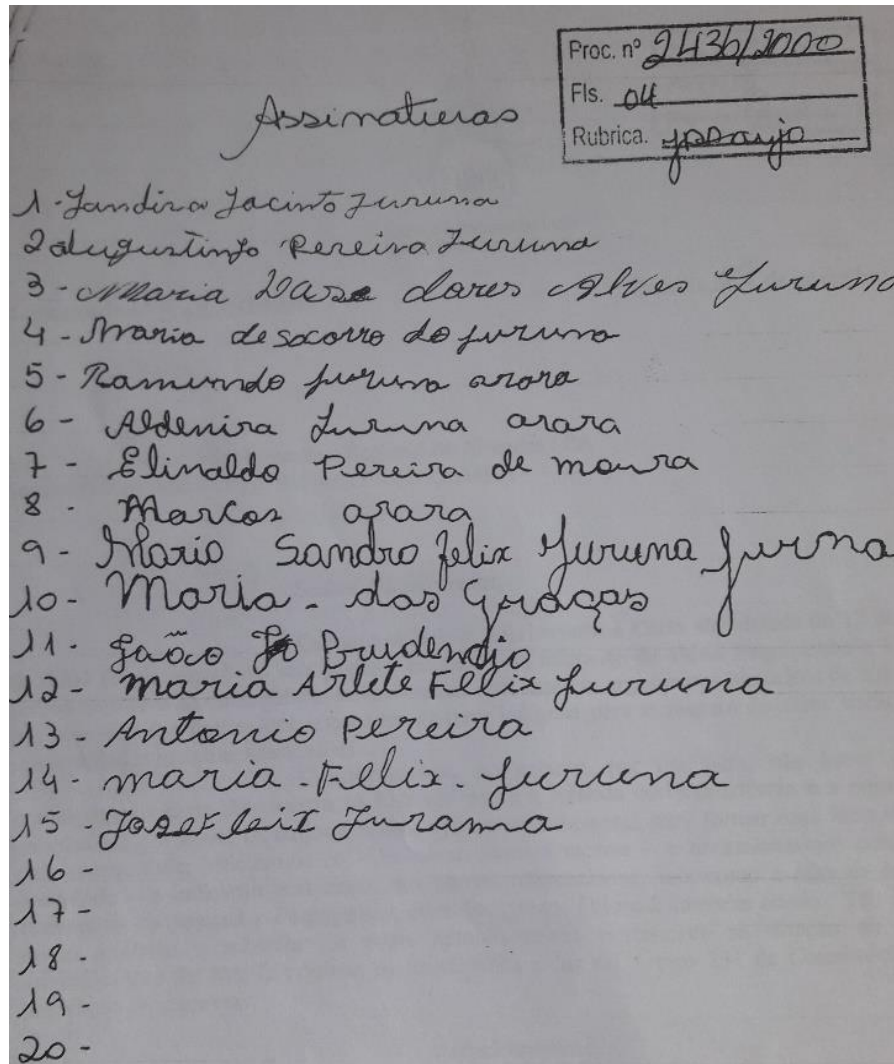 Proc. nº 2436/2000
Fls. 04
Rubrica.
Assinaturas
1 - Jandira Jacinto Juruna
2 Augustinjo Pereira Juruna
3 - Maria das dores Alves Juruna
4 - Maria de socorro do juruna
5 - Ramundo juruna arara
6 - Aldenira Juruna arara
7 - Elinaldo Pereira de moura
8 - Marcos arara
9 - Mario Sandro felix Juruna jurna
10 - Maria - das Graças
11 - João Prudendjo
12 - maria Arlete Felix juruna
13 - Antonio Pereira
14 - maria - Felix - juruna
15 - Jose Jurama
16 -
17 -
18 -
19 -
20 -